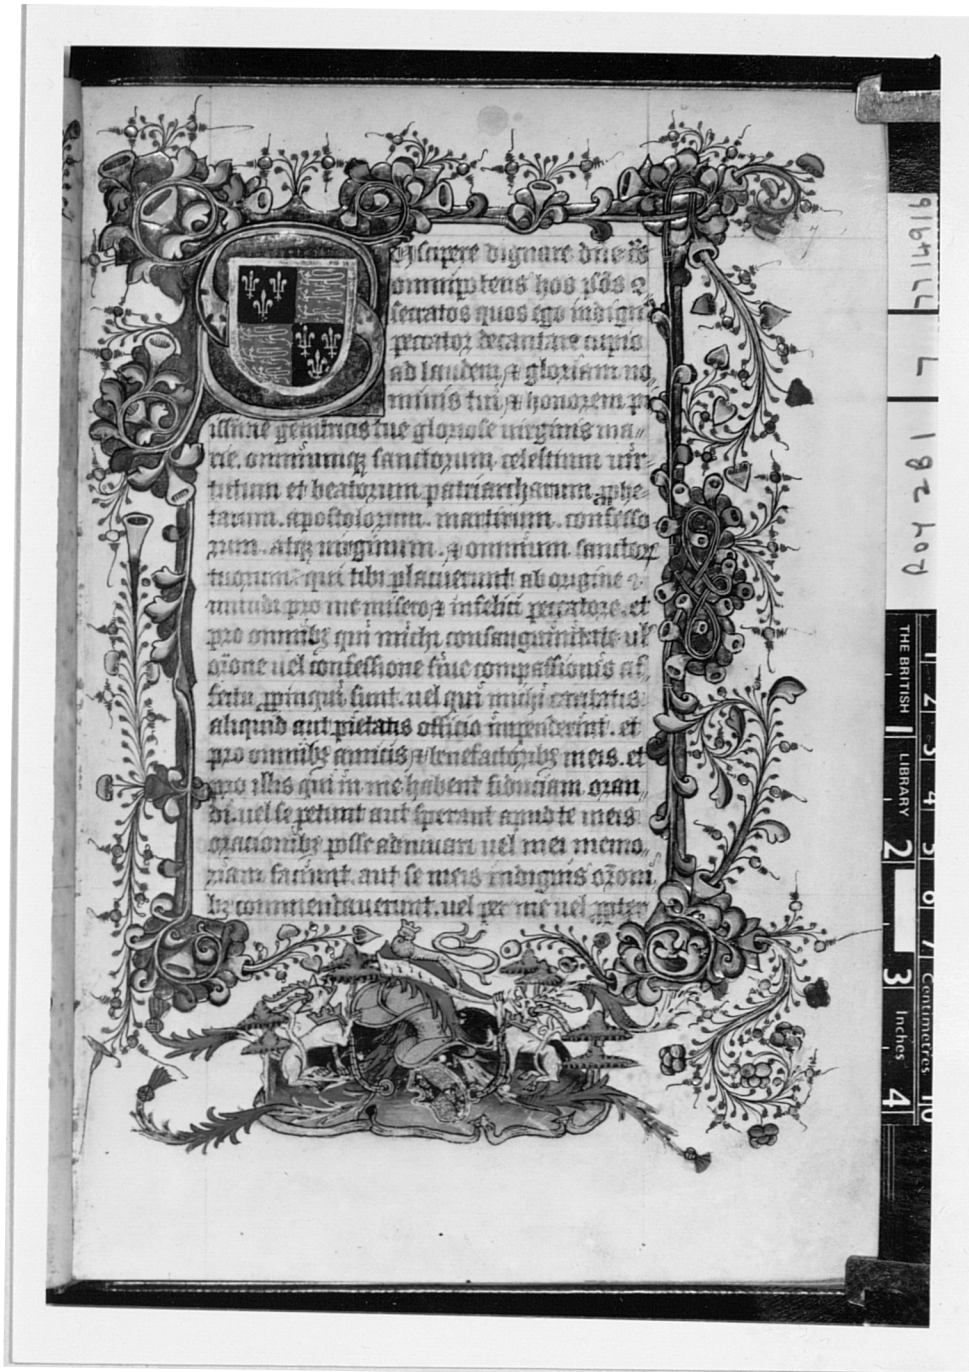 Suscipere dignare dñe ds̃
omnipotens hos psõs 9
secratos quos ego indignꝰ
peccator decantare cupio
ad laudem ⁊ gloriam no„
minis tui ⁊ honorem pi
issime genitricis tue gloriose uirginis ma„
rie. omniumqꝫ sanctorum celestium uir-
tutum et beatorum patriarcharum. ꝓphe-
tarum. apostolorum. martirum. confesso
rum. atqꝫ uirginum. ⁊ omnium sanctoꝝ
tuorum. qui tibi placuerunt ab origine
mundi pro me misero ⁊ infelici peccatore. et
pro omnibꝫ qui michi consanguinitate uel
or̃one uel confessione siue compassionis af„
fectu ꝓpinqui sunt. uel qui michi caritatis
aliquid aut pietatis officio impenderint. et
pro omnibꝫ amicis ⁊ benefactoribꝫ meis. et
pro illis qui in me habent fiduciam oran
di. uel se petunt aut sperant apud te meis
oracionibꝫ posse adiuuari uel mei memo„
riam faciunt. aut se meis indignis or̃oni„
bꝫ commendauerunt. uel per me uel ꝓpter
7714916
L
1821
THE BRITISH LIBRARY
2 3 4
Inches
1 2 3 4 5 6 7
Centimetres
10